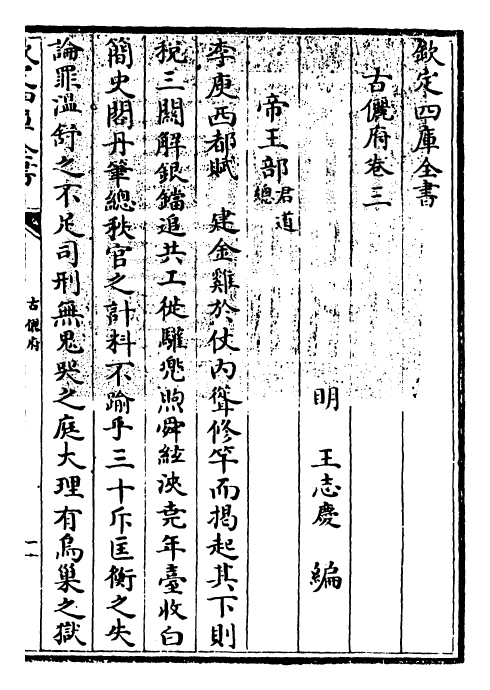 欽定四庫全書
古儷府卷三
明 王志慶 編
帝王部 君道總
李庾西都賦 建金雞於仗內聳修竿而揭起其下則
稅三關解銀鐺追共工徙驩兜煦舜絃泱堯年臺收白
簡史閣丹筆總秋官之計料不踰乎三十斥匡衡之失
論罪溫舒之不足司刑無鬼哭之庭大理有烏巢之獄
古儷府
一